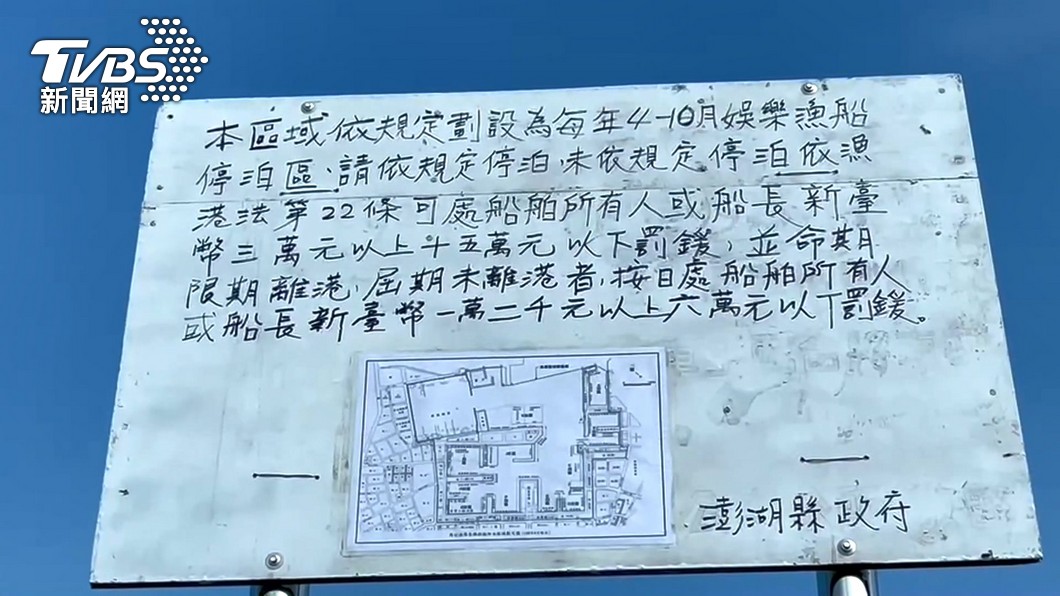 TVBS
新聞網
本區域依規定劃設為每年4-10月娛樂漁船
停泊區、請依規定停泊、未依規定停泊依漁
港法第22條可處船舶所有人或船長新臺
幣三萬元以上十五萬元以下罰鍰，並命期
限期離港、屆期未離港者，按日處船舶所有人
或船長新臺幣一萬二千元以上六萬元以下罰鍰。
澎湖縣政府